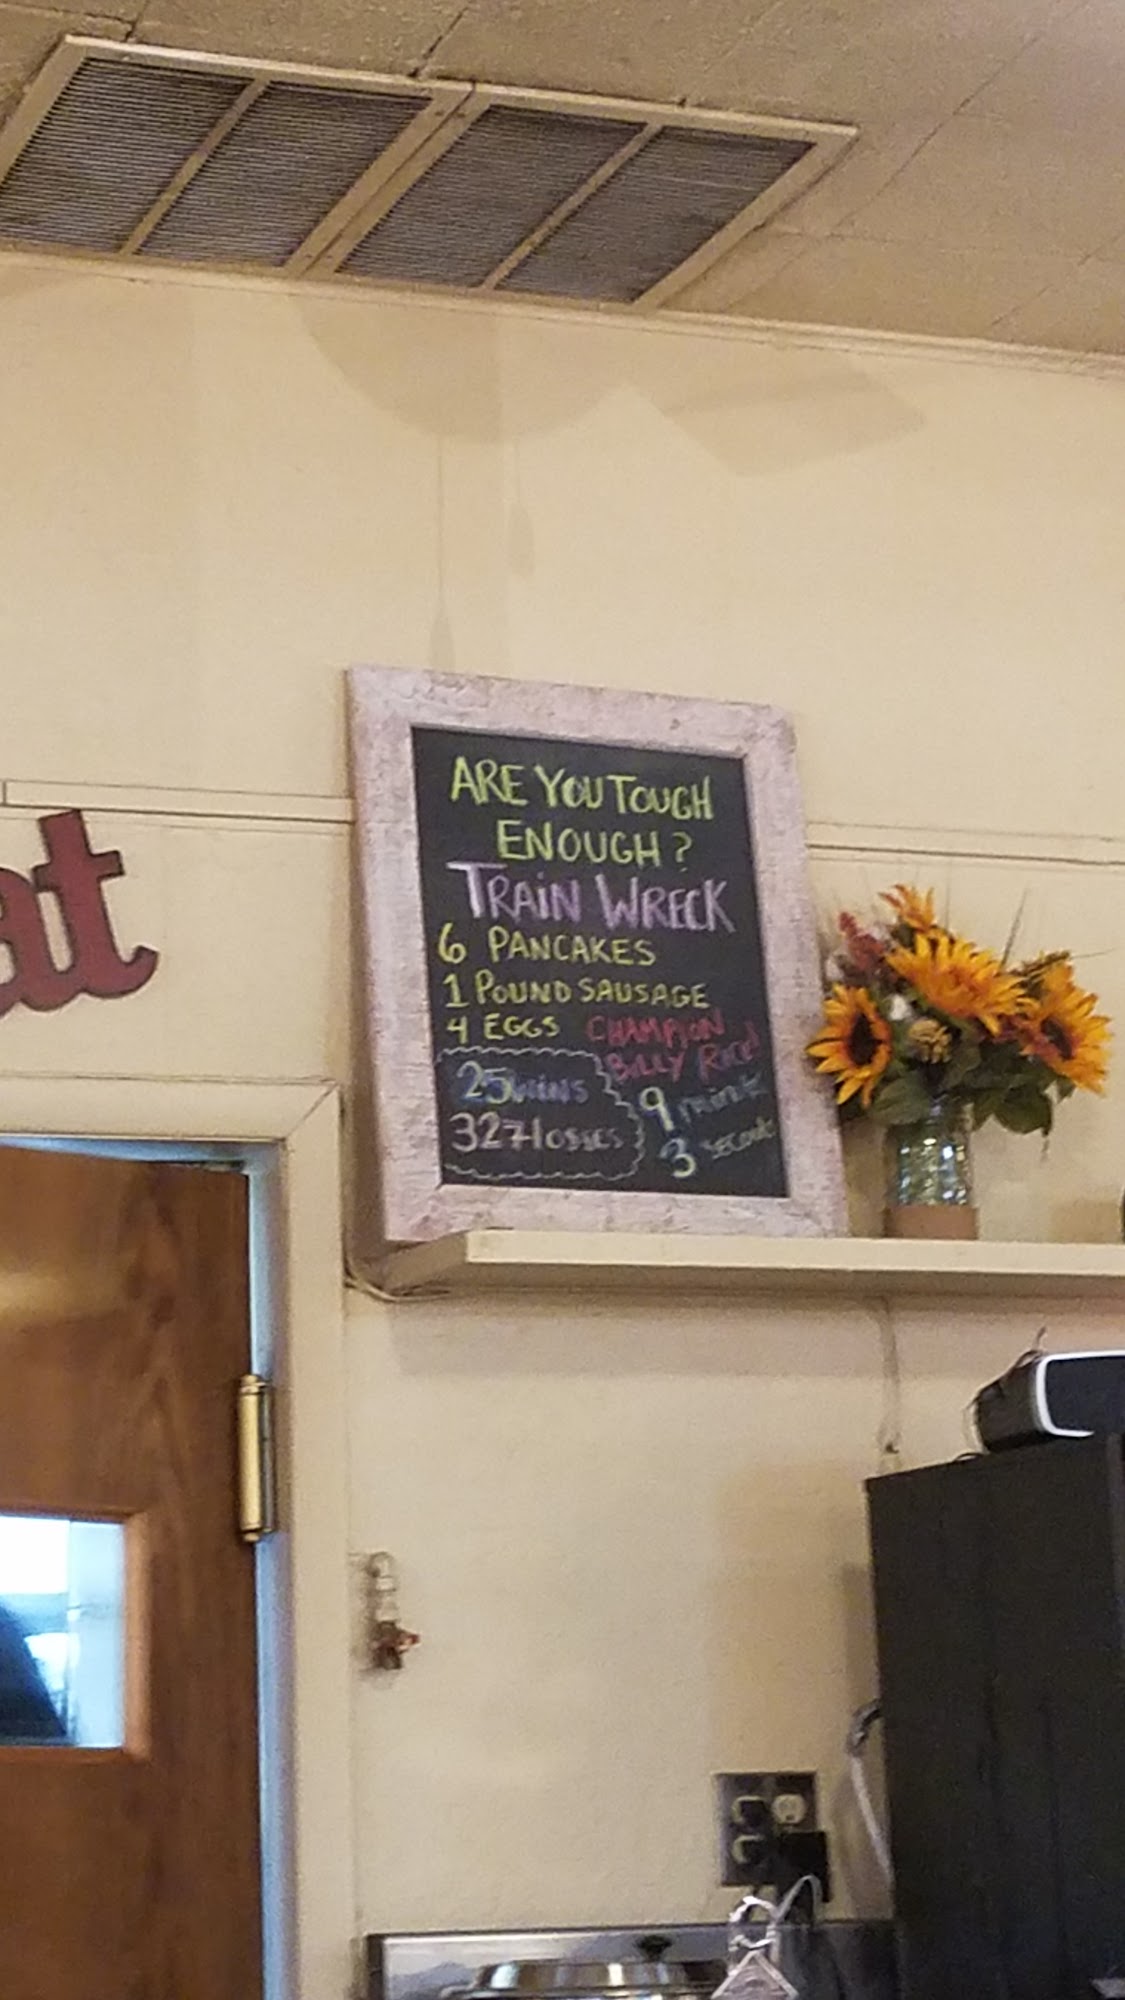 at
ARE YOU TOUGH
ENOUGH?
TRAIN WRECK
6 PANCAKES
1 POUND SAUSAGE
4 EGGS CHAMPION
BILLY
25 WINS
327 losses
9 minute
3 seconds